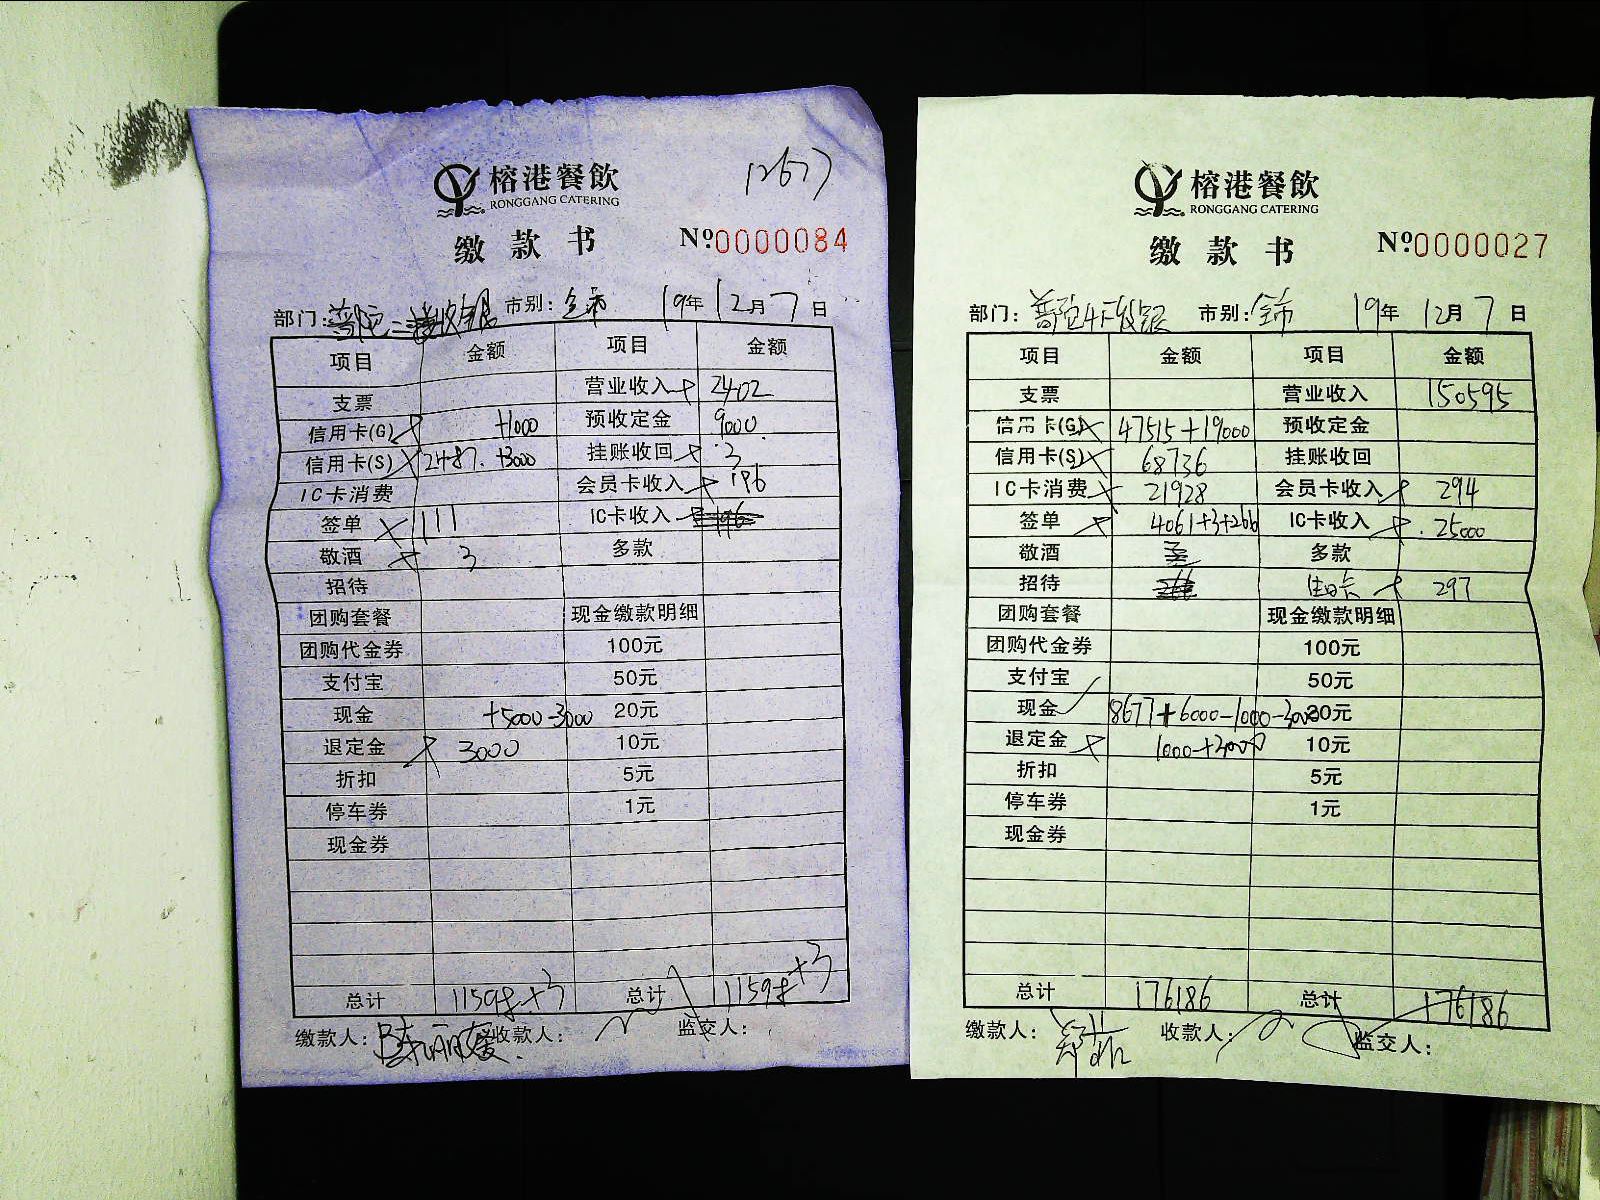 榕港餐飲
RONGGANG CATERING
12677
缴款书
№0000084
部门: 市别: 全市 19年 12月 7日
项目 金额 项目 金额
支票 营业收入 2402
信用卡(G) +1000 预收定金 9000
信用卡(S) 2487.+3000 挂账收回 3
IC卡消费 会员卡收入 196
签单 1111 IC卡收入
敬酒 3 多款
招待
团购套餐 现金缴款明细
团购代金券 100元
支付宝 50元
现金 +5000-3000 20元
退定金 3000 10元
折扣 5元
停车券 1元
现金券
总计 +3 总计 +3
缴款人: 收款人: 监交人:
榕港餐飲
RONGGANG CATERING
缴款书
№0000027
部门: 市别: 全市 19年 12月 7日
项目 金额 项目 金额
支票 营业收入 150595
信用卡(G) 47515+19000 预收定金
信用卡(S) 68736 挂账收回
IC卡消费 21928 会员卡收入 294
签单 4061+3+266 IC卡收入 25000
敬酒 多款
招待 生日卡 297
团购套餐 现金缴款明细
团购代金券 100元
支付宝 50元
现金 8677+6000-1000-3000 20元
退定金 1000+3000 10元
折扣 5元
停车券 1元
现金券
总计 176186 总计 176186
缴款人: 收款人: 监交人: